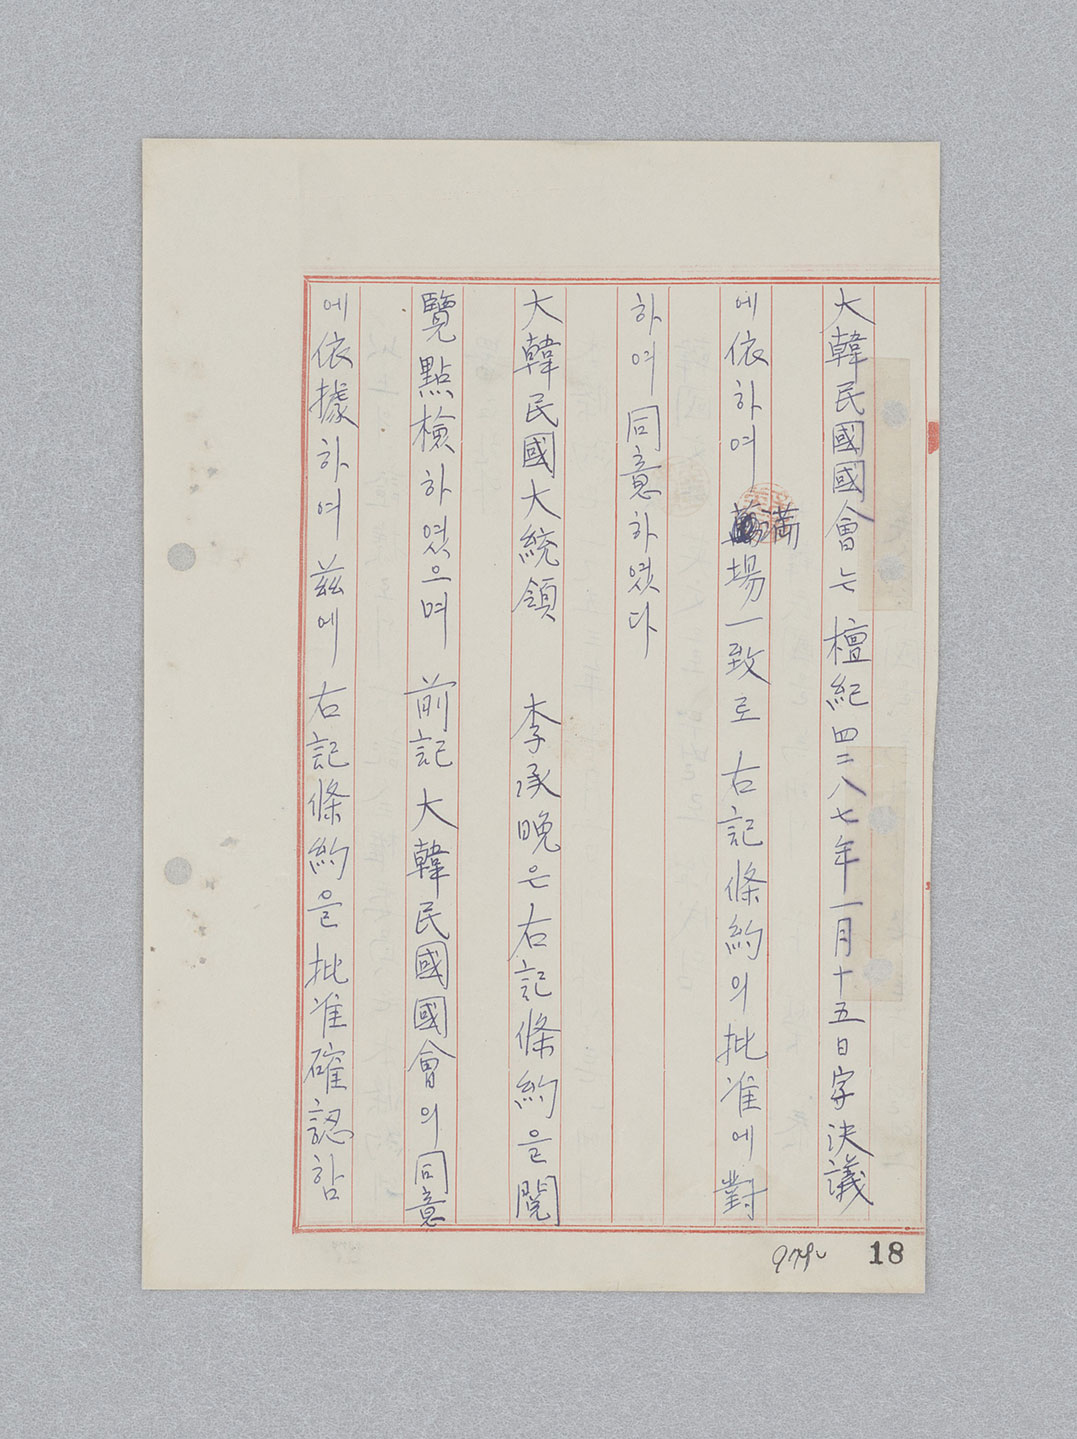 大韓民國國會는 檀紀四二八七年一月十五日字決議
에依하여 滿場一致로 右記條約의批准에對
하여同意하였다
大韓民國大統領 李承晩은右記條約을閱
覽點檢하였으며 前記大韓民國國會의同意
에依據하여茲에 右記條約을批准確認함
18